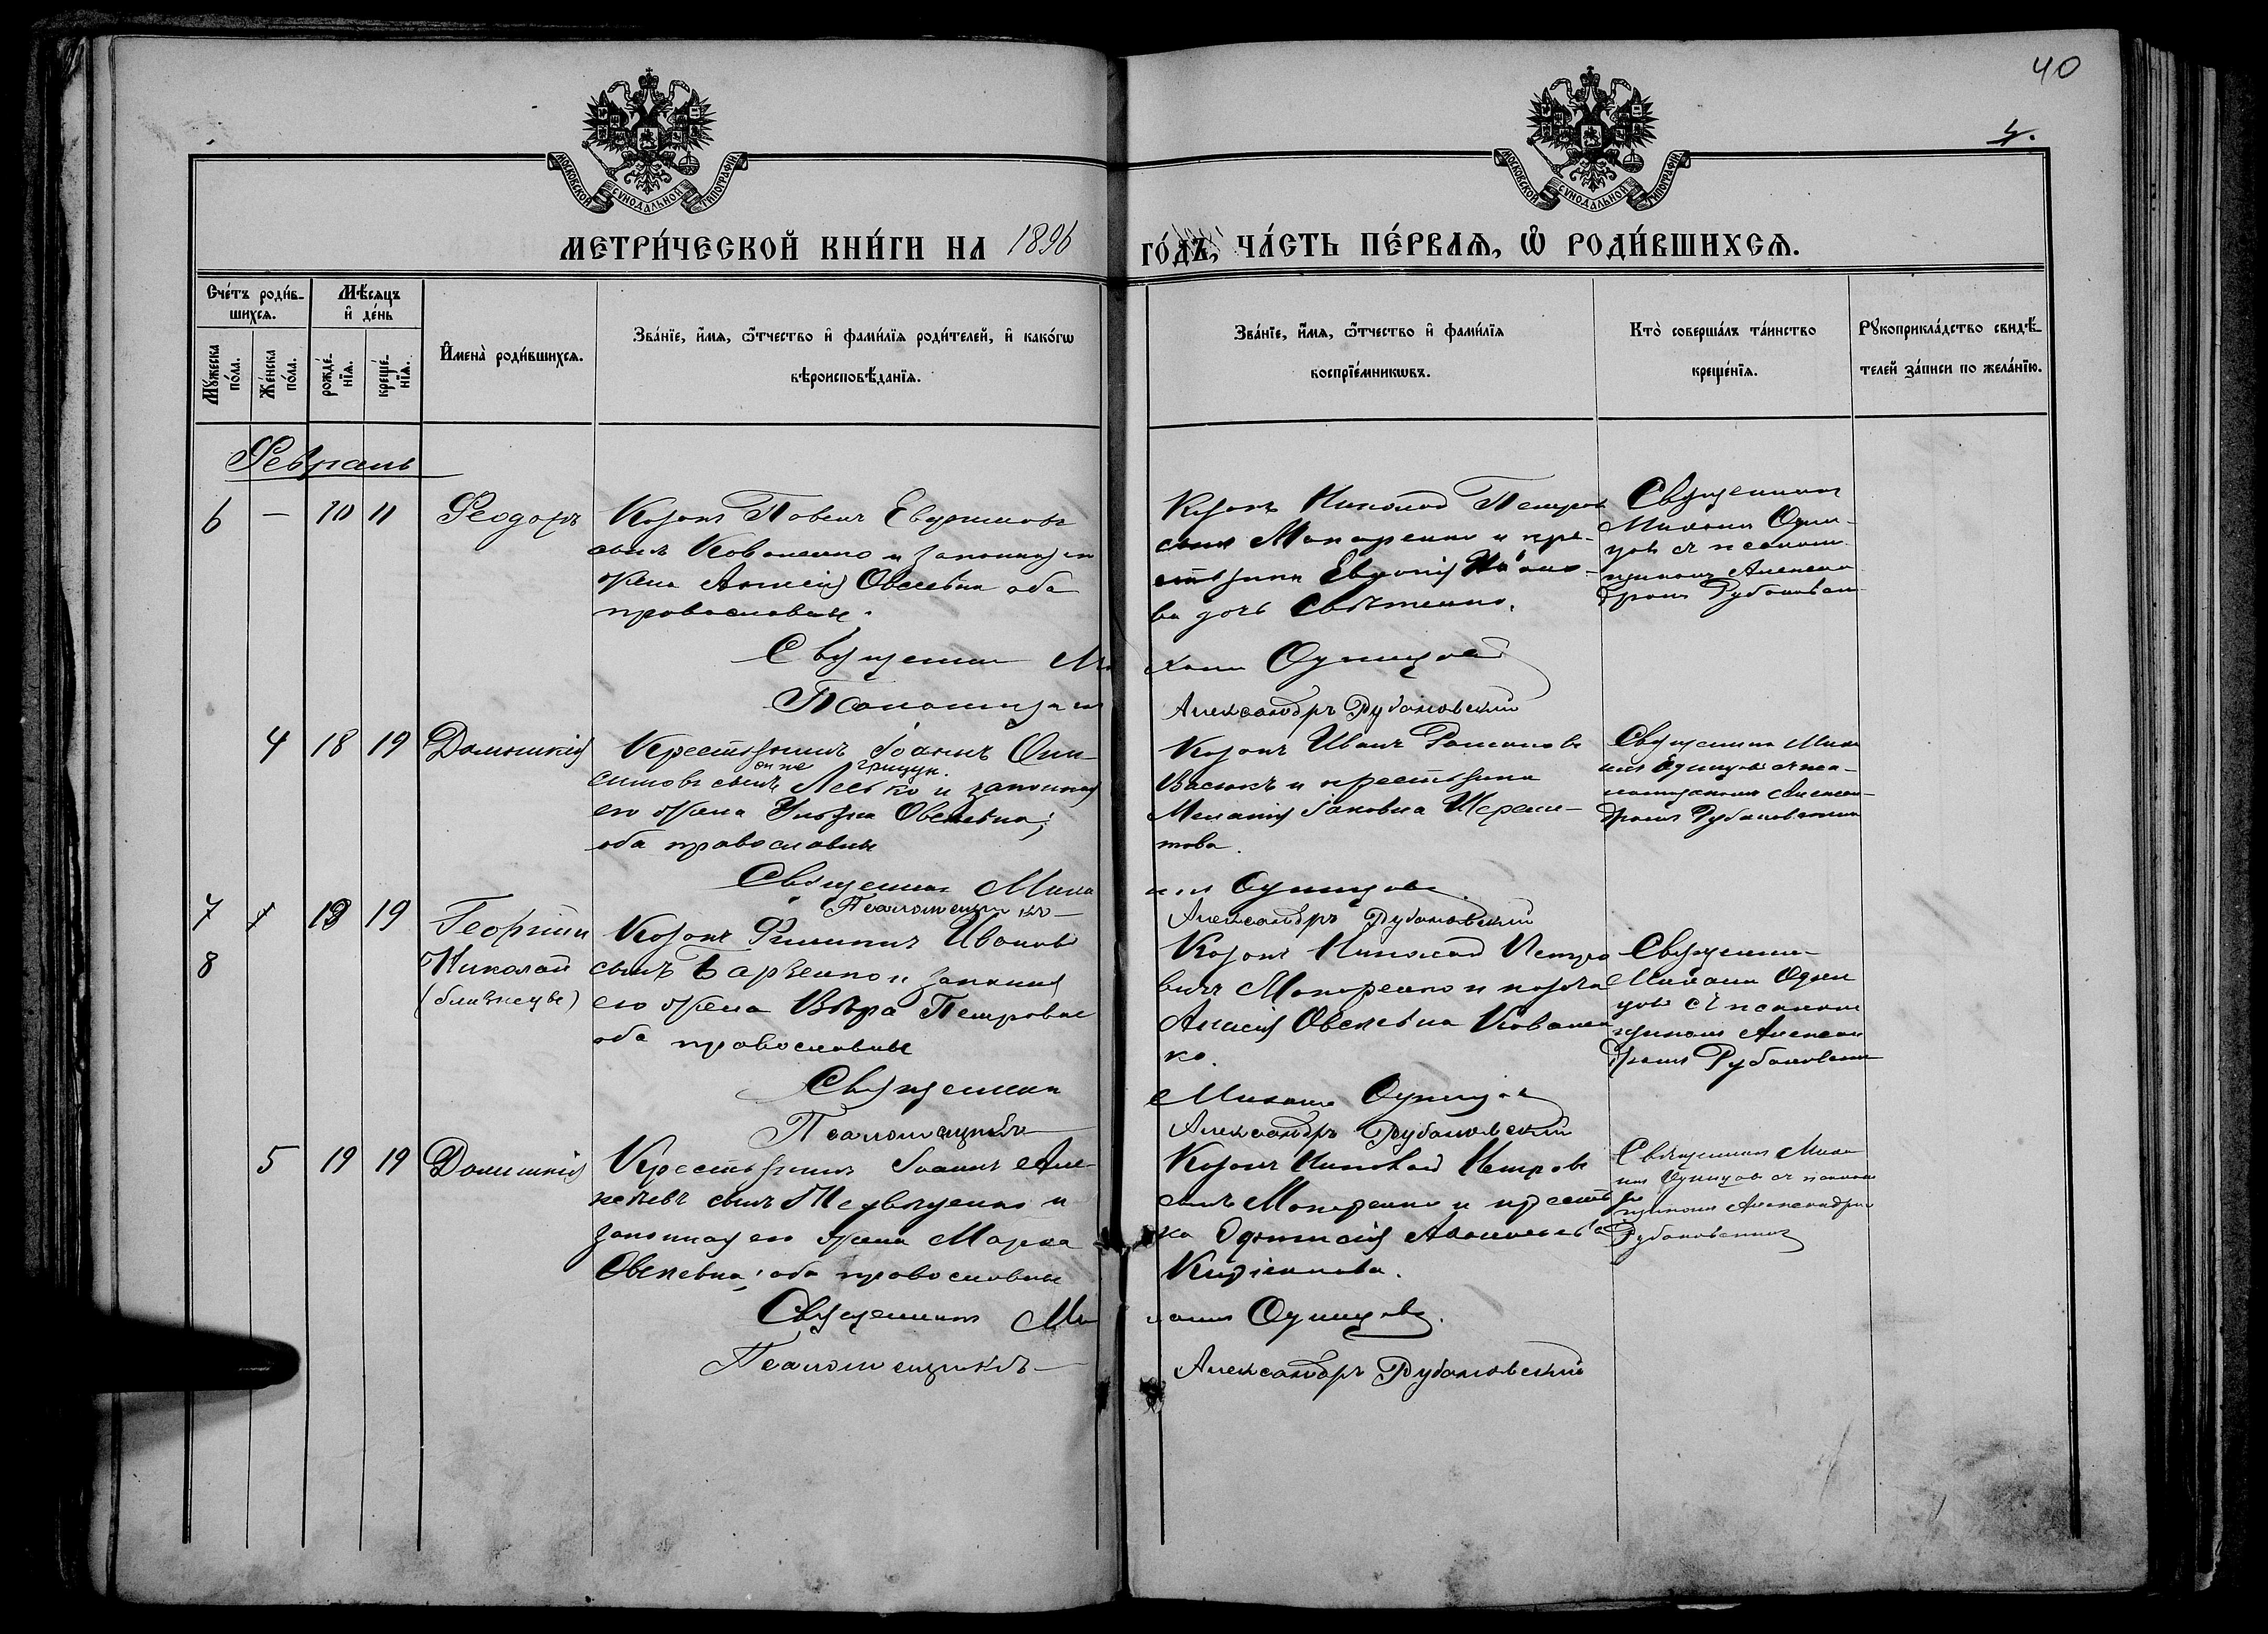 40
4.
МОСКОВСКОЙ СѴНОДАЛЬНОЙ ТИПОГРАФІИ
МОСКОВСКОЙ СѴНОДАЛЬНОЙ ТИПОГРАФІИ
МЕТРИ́ЧЕСКОЙ КНИ́ГИ НА 1896 ГО́ДЪ, ЧА́СТЬ ПЕ́РВАѦ, Ѡ҆ РОДИ́ВШИХСѦ.
Сче́тъ роди́в-
шихсѧ.
Мѣ́сѧцъ
и҆ де́нь
Мꙋ́жеска
по́ла.
Же́нска
по́ла.
рожде́-
нїѧ.
креще́-
нїѧ.
И҆мена̀ роди́вшихсѧ.
Зва́нїе, и҆́мѧ, ѻ҆́тчество и҆ фами́лїѧ роди́телей, и҆ како́гѡ
вѣроисповѣ́данїѧ.
Зва́нїе, и҆́мѧ, ѻ҆́тчество и҆ фами́лїѧ
воспрїе́мникѡвъ.
Кто̀ соверша́лъ та́инство
креще́нїѧ.
Рꙋкоприкла́дство свидѣ́-
телей за́писи по жела́нїю.
Февраль
6 — 10 11 Феодоръ
Козакъ Павелъ
сынъ Коваленко и законная его
жена Евсеевна оба
православные.
Козакъ Николай Петровъ
сынъ Макаренко и кре-
стьянка
ва дочь
Священникъ
Михаилъ Один-
цовъ съ псалом-
щикомъ Алексан-
дромъ Рубановскимъ
Священникъ Михаилъ Одинцовъ
Псаломщикъ Александръ Рубановскій
4 18 19 Домникія
Крестьянинъ Іоаннъ Они-
симовъ сынъ и законная
его жена Ульяна Евсеевна;
оба православные
Козакъ Иванъ Романовъ
Васюкъ и крестьянка
Меланія Іаковна Шереме-
това.
Священникъ Миха-
илъ Одинцовъ съ пса-
ломщикомъ Алексан-
дромъ Рубановскимъ
Священникъ Михаилъ Одинцовъ
Псаломщикъ Александръ Рубановскій
7 18 19 Георгій
8 Николай
(близнецы)
Козакъ Филиппъ Ивановъ
сынъ и законная
его жена Вѣра Петровна
оба православные
Козакъ Николай Петро-
вичъ Макаренко и козачка
Евсеевна Ковален-
ко.
Священникъ
Михаилъ Один-
цовъ съ псалом-
щикомъ Алексан-
дромъ Рубановскимъ
Священникъ Михаилъ Одинцовъ
Псаломщикъ Александръ Рубановскій
5 19 19 Домникія
Крестьянинъ Іоаннъ Але-
ксѣевъ сынъ и
законная его жена
Евсеевна; оба православные
Козакъ Николай Петровъ
сынъ Макаренко и крестьян-
ка
Священникъ Миха-
илъ Одинцовъ съ псалом-
щикомъ Александромъ
Рубановскимъ
Священникъ Михаилъ Одинцовъ.
Псаломщикъ Александръ Рубановскій